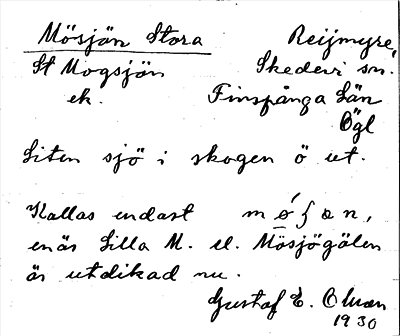 Mösjön Stora
Reijmyre,
St Mogsjön
Skedevi sn.
ek.
Finspånga Län
Ögl
Liten sjö i skogen ö ut.
Kallas endast mǿʃɑn,
enär Lilla M. el. Mösjögölen
är utdikad nu.
Gustaf E.
1930